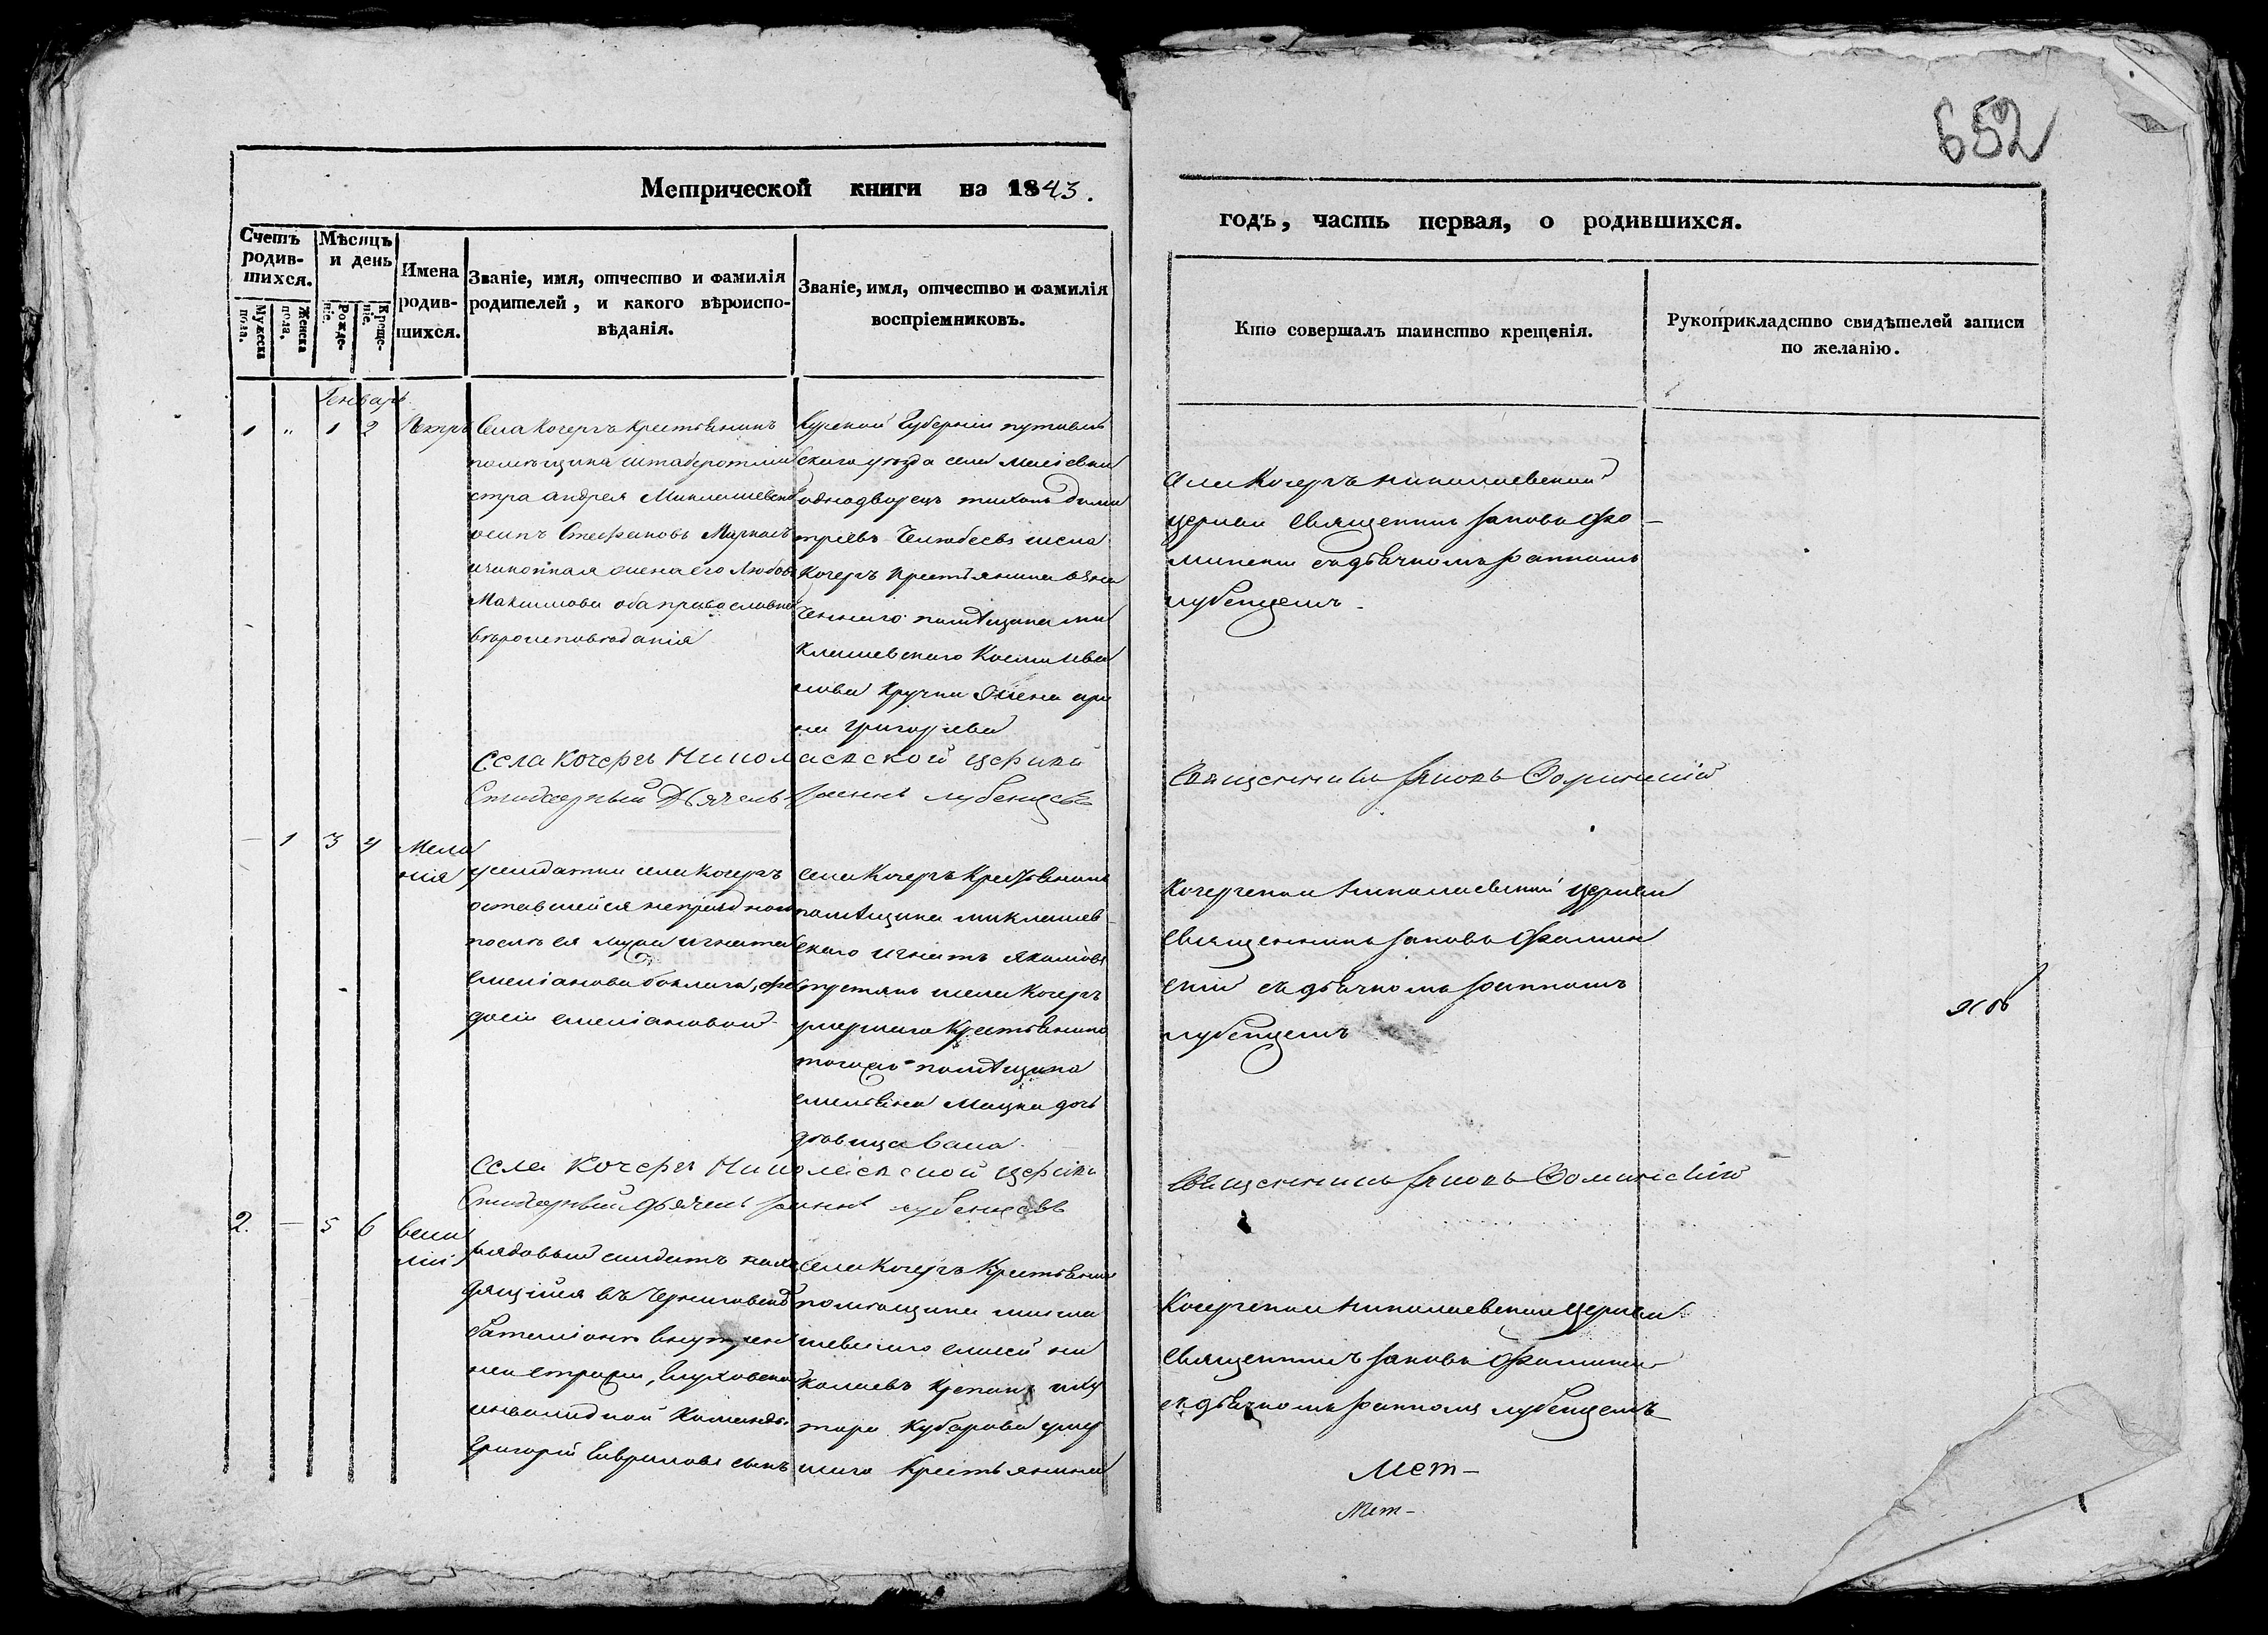 652
Метрической книги на 1843.
годъ, часть первая, о родившихся.
Счетъ родив-
шихся.
Мужеска пола.
Женска пола.
Мѣсяцъ и день
Рожде-
ніе.
Креще-
ніе.
Имена
родив-
шихся.
Званіе, имя, отчество и фамилія
родителей, и какого вѣроиспо-
вѣданія.
Званіе, имя, отчество и фамилія
воспріемниковъ.
Кто совершалъ таинство крещенія.
Рукоприкладство свидѣтелей записи
по желанію.
Генварь
1 " 1 2 Петръ
Села Кочергъ крестьянинъ
помѣщика штабсротми
стра андрея Миклашевска
осипъ Стефановъ
и законная жена его Любовь
Максимова оба православна
вѣроисповѣданія
Курской Губерніи путивль
скаго уѣзда села
однодворецъ тихонъ дими
тріевъ села
Кочергъ крестьянина
помѣщика ми
клашевскаго Косми ива
нова Кручки жена ири
на григорьева
села Кочергъ николаевской
церкви священникъ Іаковъ Фо-
минскій съ дьячкомъ Іоанномъ
лубенцемъ
Села Кочергъ Николаевской церкви
Стихарный Дьячекъ Іоаннъ лубенцевъ
Священникъ Іаковъ Фоминскій
— 1 3 4 Мела
нія
у солдатки села Кочергъ
оставшейся
послѣ ея мужа игната
емеліанова
досіи емеліановой
села Кочергъ крестьянинъ
помѣщика миклашев
скаго игнатъ Якимовъ
села Кочергъ
умершаго крестьянина
тогожъ помѣщика
емельяна Мацка дочь
дѣвица
Кочергской николаевской церкви
священникъ Іаковъ Фомин
скій съ дьячкомъ Іоанномъ
лубенцемъ
Села Кочергъ Николаевской церкви
Стихарный дьячекъ Іоаннъ лубенцевъ
Священникъ Іаковъ Фоминскій
2. — 5 6 васи
лій
рядовый солдатъ нахо
дящійся въ Черниговско
баталіонѣ внутрен
ней стражи, Глуховской
инвалидной команды
Григорій Гавриловъ сынъ
села Кочергъ крестьянинъ
помѣщика микла
шевскаго елисей ни
колаевъ
тора Кубарова умер
шаго крестьянина
Кочергской николаевской церкви
священникъ Іаковъ Фоминскій
съ дьячкомъ Іоанномъ лубенцемъ
Мет-
Мет-